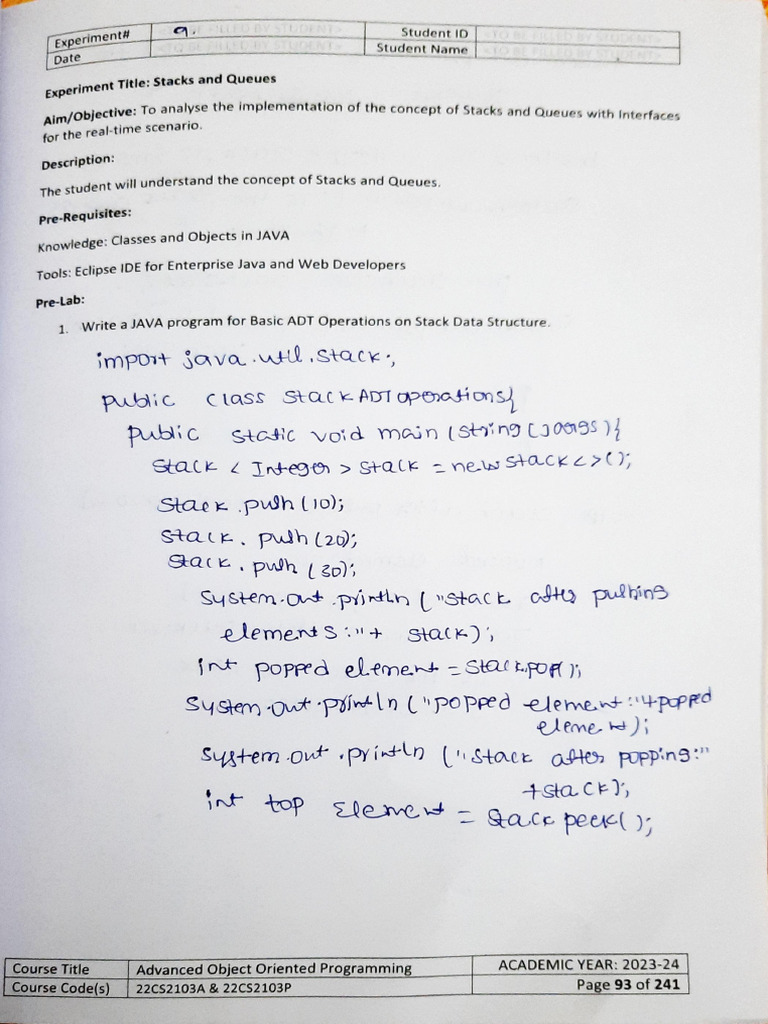 Experiment# 9. <TO BE FILLED BY STUDENT> Student ID <TO BE FILLED BY STUDENT>
Date <TO BE FILLED BY STUDENT> Student Name <TO BE FILLED BY STUDENT>
Experiment Title: Stacks and Queues
Aim/Objective: To analyse the implementation of the concept of Stacks and Queues with Interfaces
for the real-time scenario.
Description:
The student will understand the concept of Stacks and Queues.
Pre-Requisites:
Knowledge: Classes and Objects in JAVA
Tools: Eclipse IDE for Enterprise Java and Web Developers
Pre-Lab:
1. Write a JAVA program for Basic ADT Operations on Stack Data Structure.
import java.util.Stack;
public class StackADToperations{
public static void main (string[]args){
Stack < Integer > stack = new Stack<>();
Stack.push(10);
Stack.push(20);
Stack.push(30);
System.out.println ("stack after pushing
elements:"+ stack);
int popped element = stack.pop();
System.out.println ("popped element:"+popped
element);
System.out.println ("Stack after popping:"
+stack);
int top Element = Stack peek();
Course Title Advanced Object Oriented Programming ACADEMIC YEAR: 2023-24
Course Code(s) 22CS2103A & 22CS2103P Page 93 of 241